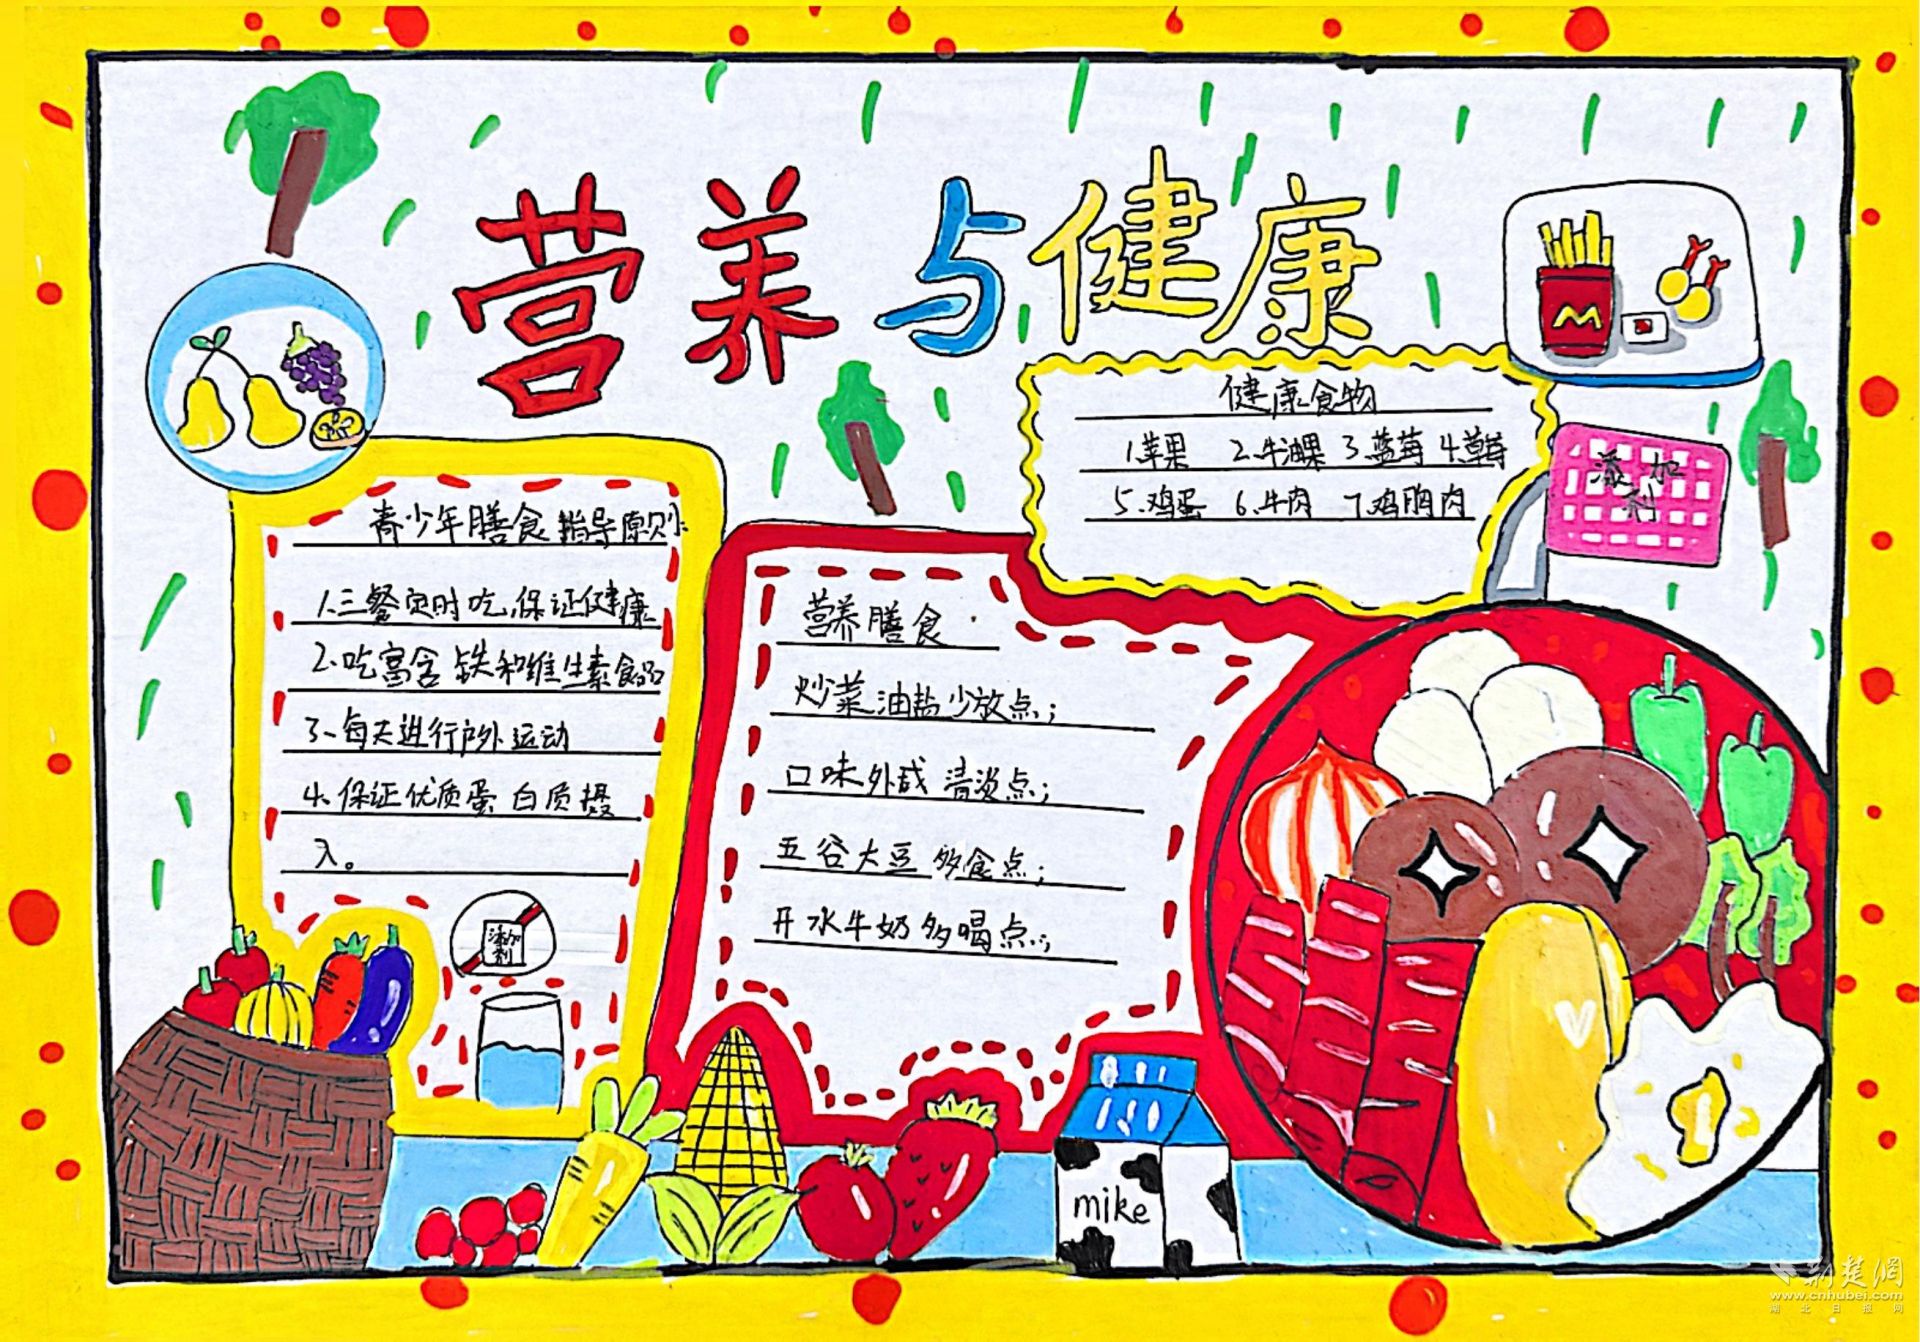 营养与健康
健康食物
1.苹果 2.牛油果 3.蓝莓 4.草莓
5.鸡蛋 6.牛肉 7.鸡胸肉
添加
剂
青少年膳食指导原则:
1.三餐定时吃,保证健康
2.吃富含铁和维生素食品
3、每天进行户外运动
4.保证优质蛋白质摄
入。
添加
剂
营养膳食
炒菜油盐少放点;
口味外咸清淡点;
五谷大豆多食点;
开水牛奶多喝点.;
mike
荆楚網
www.cnhubei.com
湖北日报网